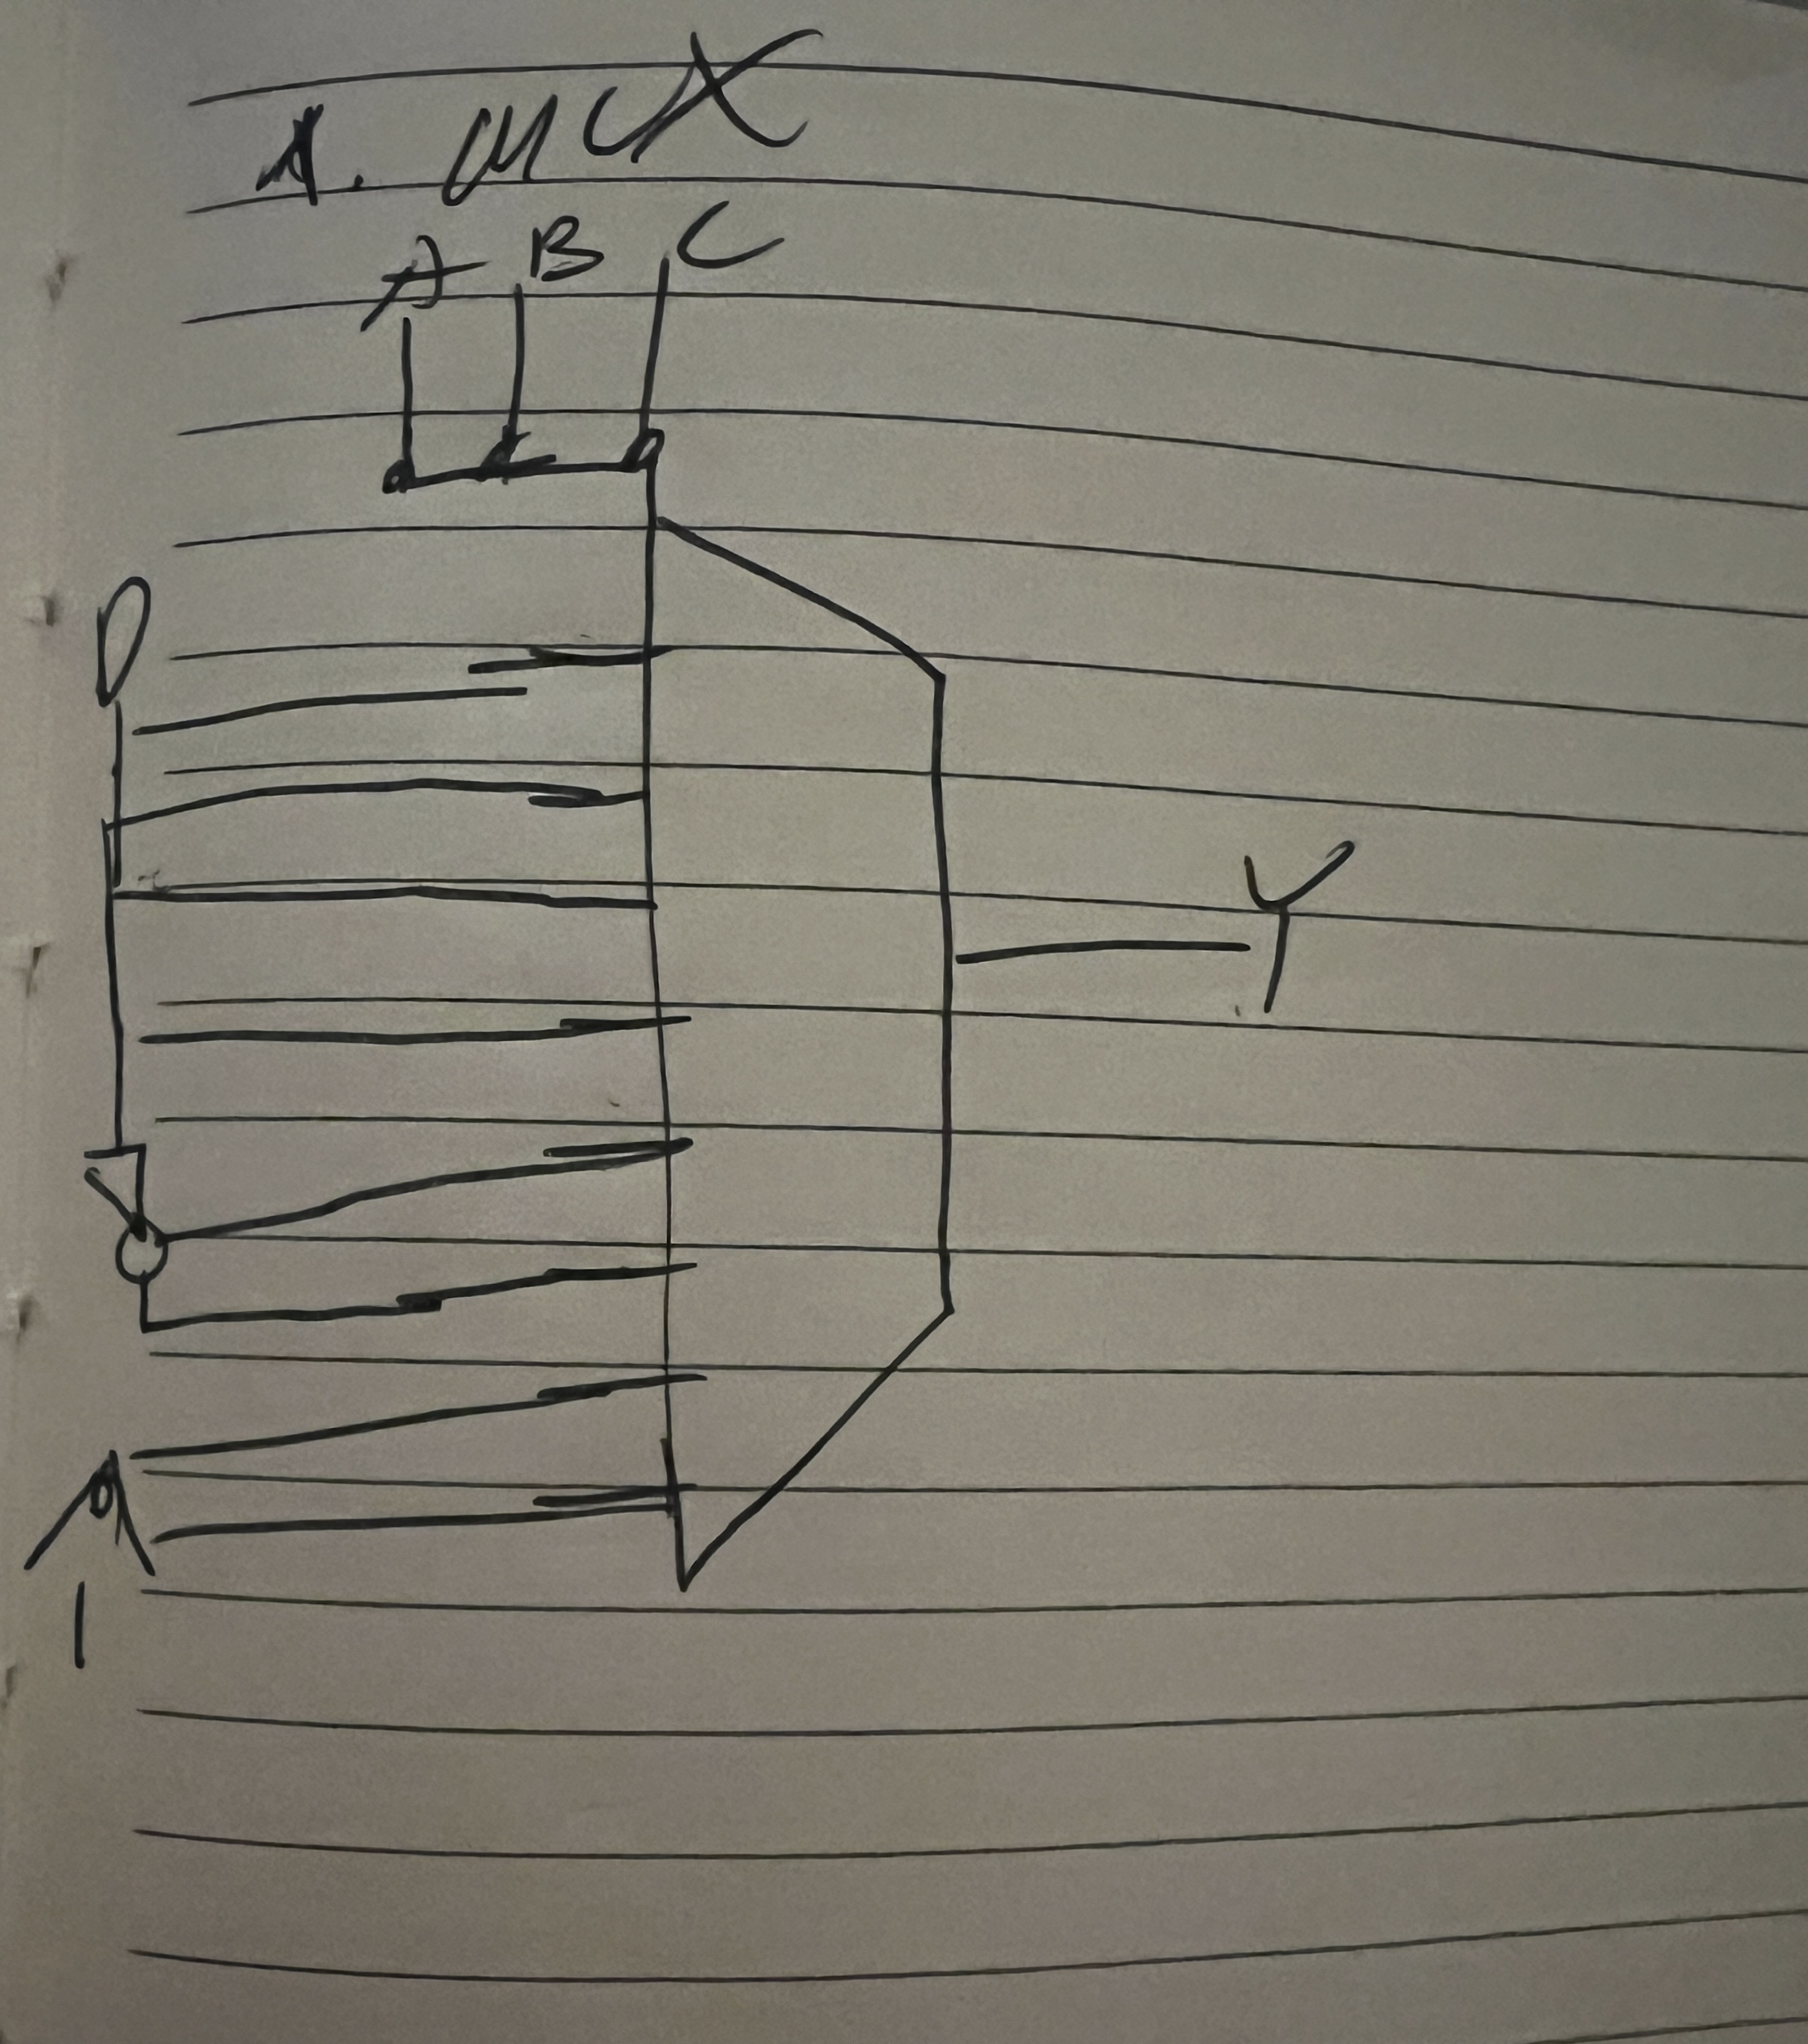 1. MUX
A B C
D
Y
1